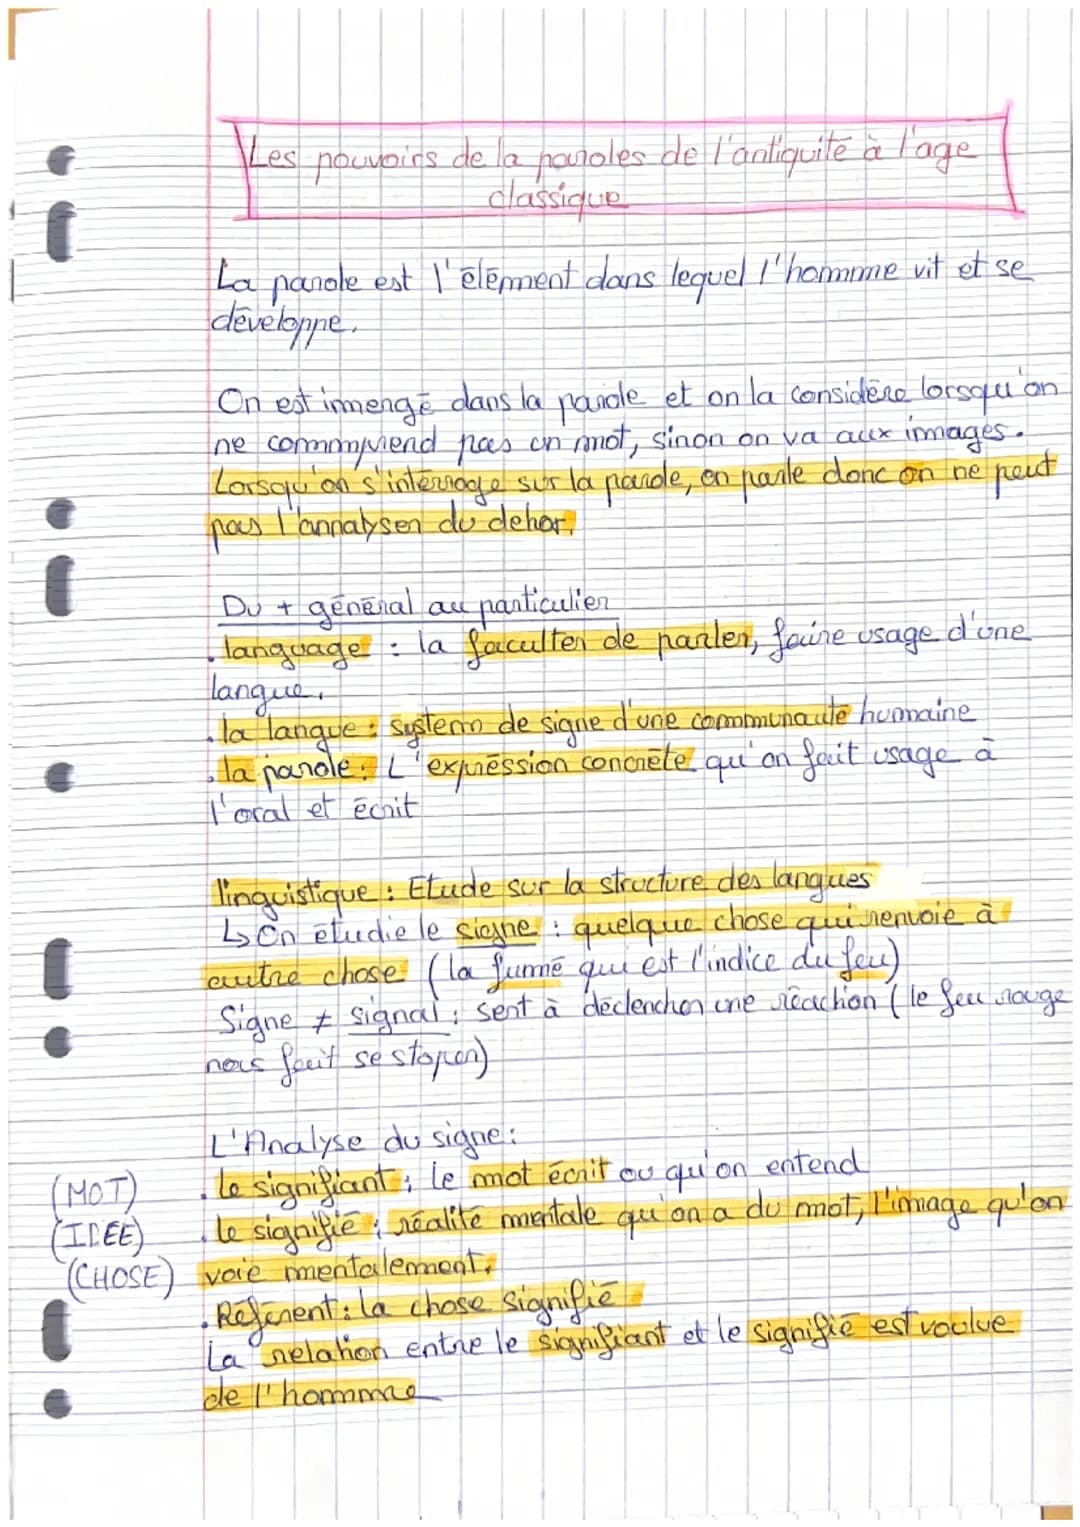 Les pouvoirs de la paroles de l'antiquité à l'age
classique
La parole est l'élément dans lequel l'homme vit et se
développe.
On est immengé dans la parole et on la considère lorsqu'on
ne comprend pas un mot, sinon on va aux images.
Lorsqu'on s'intérroge sur la parole, on parle donc on ne peut
pas l'annalyser du dehor.
Du + général au particulier
. language : la faculter de parler, faire usage d'une
langue.
. la langue : system de signe d'une communauté humaine
. la parole : L'expréssion concrète qu'on fait usage à
l'oral et écrit
linguistique : Etude sur la structure des langues
↳ On étudie le signe : quelque chose qui renvoie à
autre chose (la fumé qui est l'indice du feu)
Signe ≠ signal : sert à déclencher une réaction (le feu rouge
nous fait se stoper)
L'Analyse du signe :
(MOT) . Le signifiant : le mot écrit ou qu'on entend
(IDEE) . Le signifié : réalité mentale qu'on a du mot, l'image qu'on
(CHOSE) voie mentalement.
. Référent : la chose signifié
La relation entre le signifiant et le signifié est voulue
de l'homme